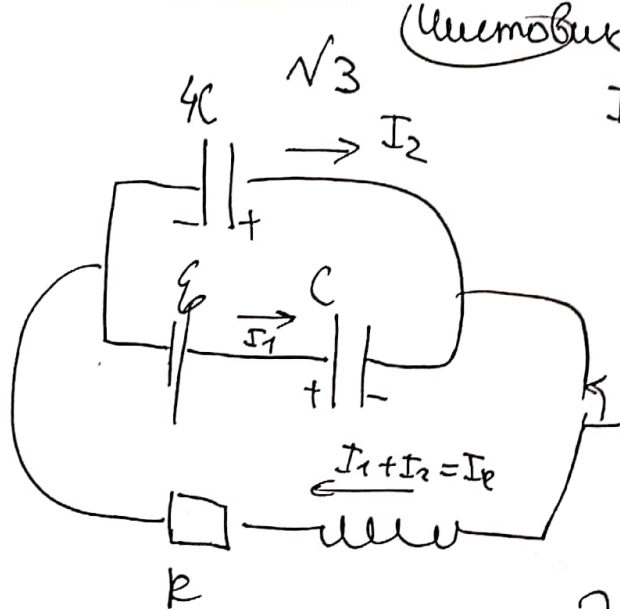 Чистовик
№3
4C
I₂
- +
ℰ
I₁
C
+ -
I₁ + I₂ = I_R
R